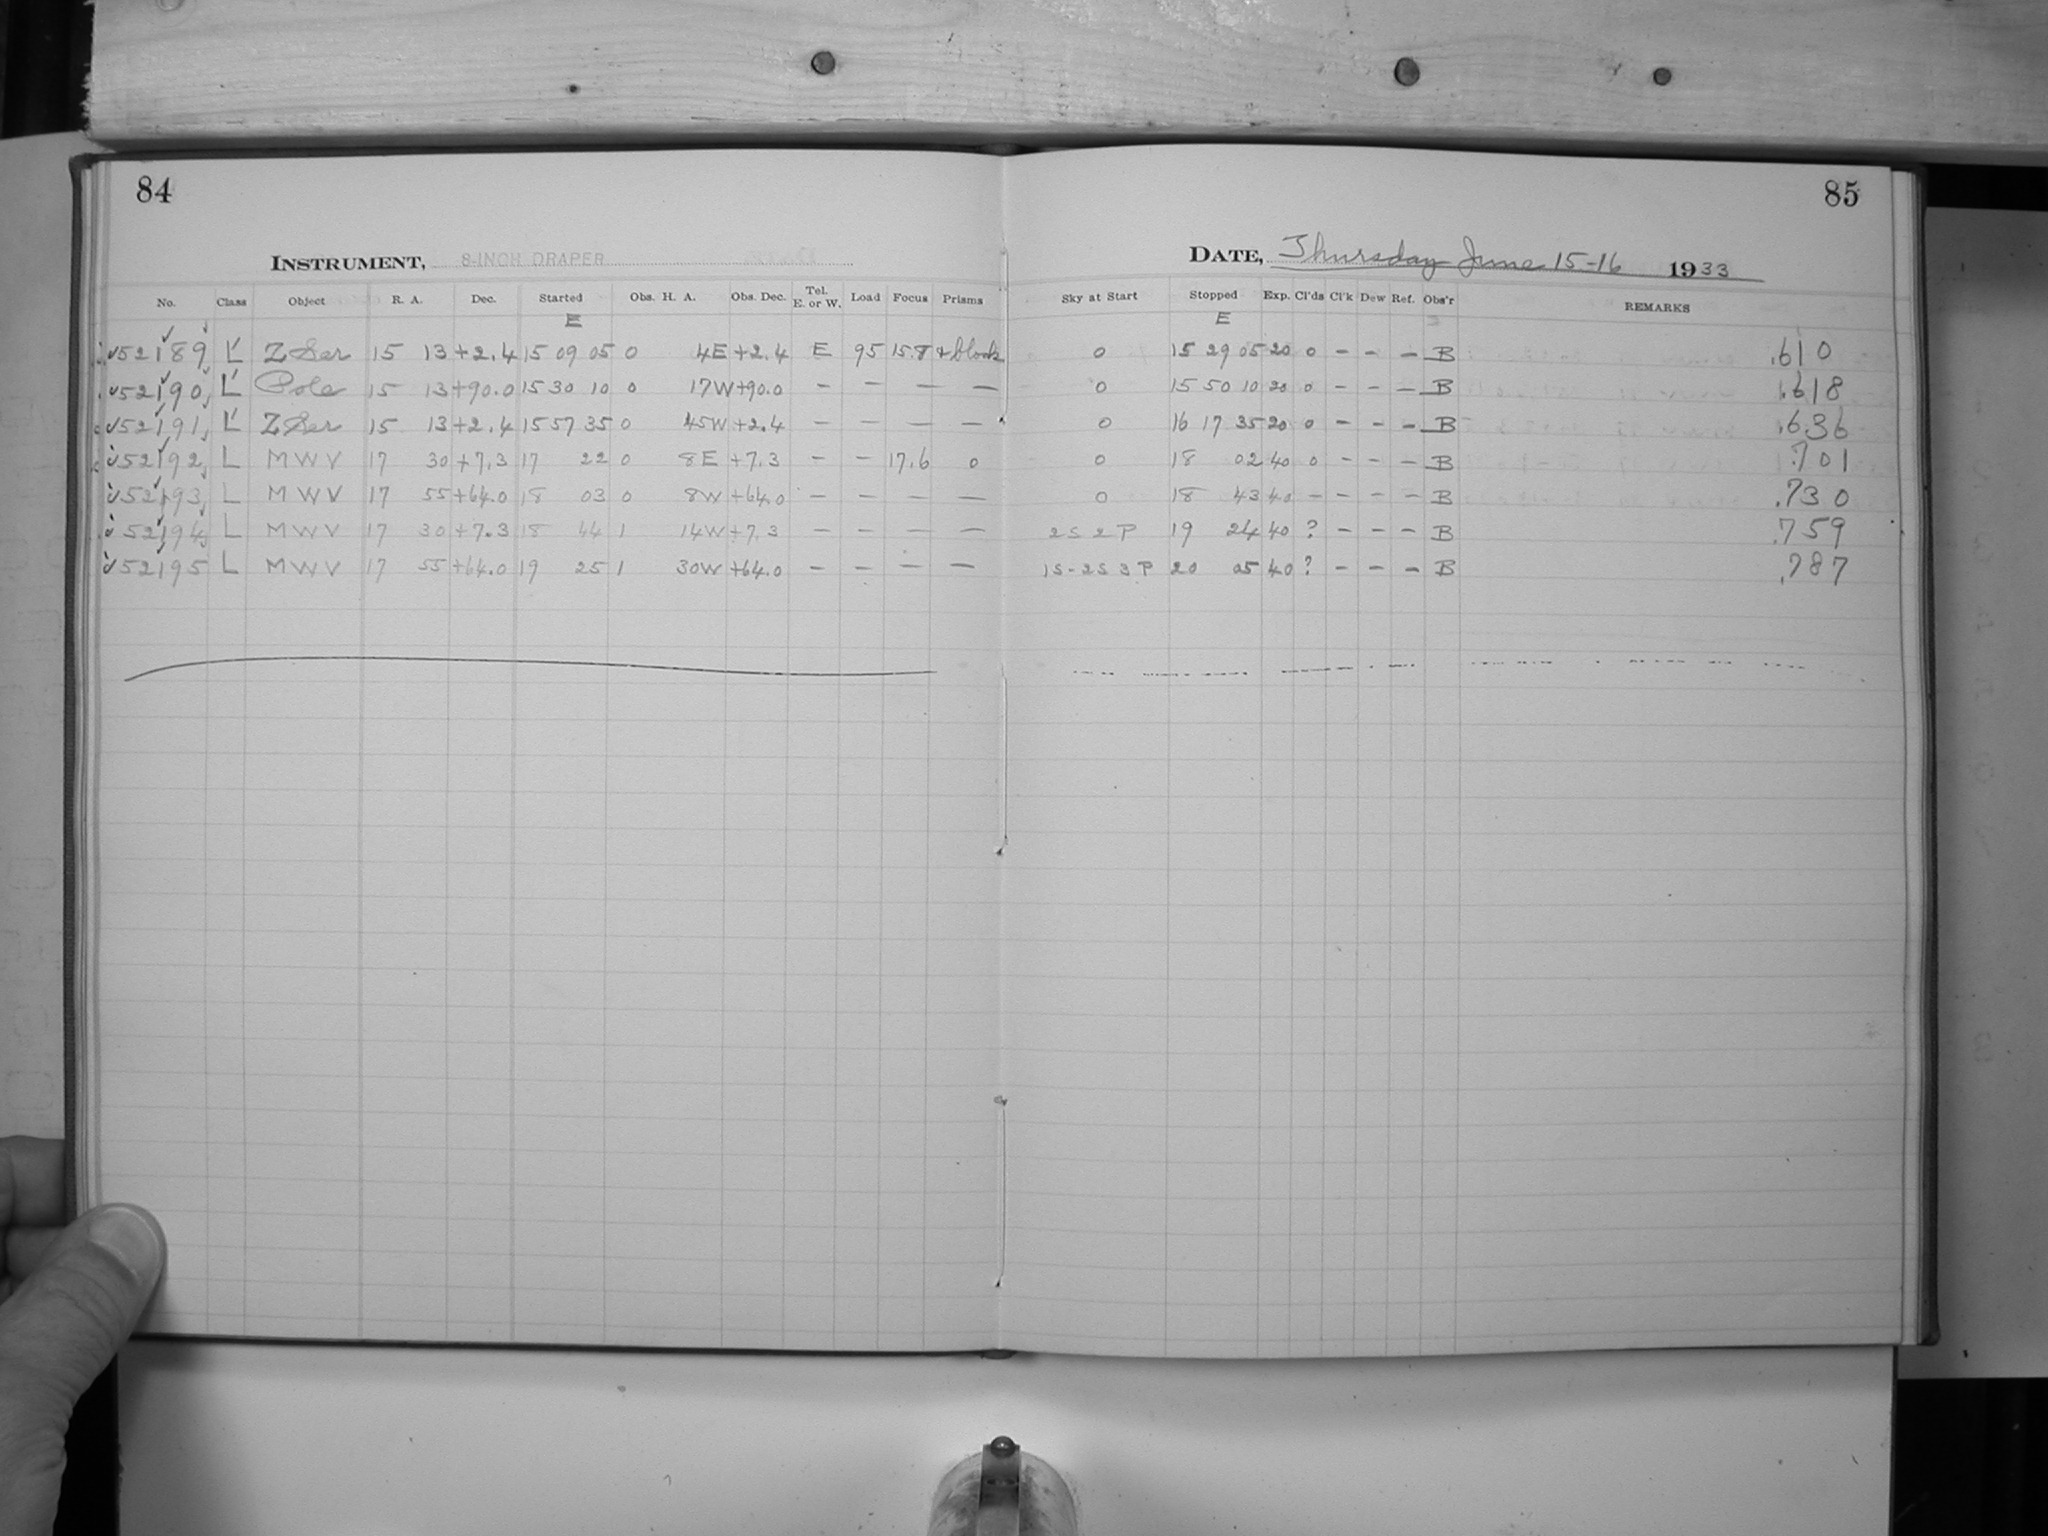 84
85
INSTRUMENT, 8-INCH DRAPER
DATE, Thursday June 15-16 1933
No. Class Object R. A. Dec. Started Obs. H. A. Obs. Dec. Tel. E. or W. Load Focus Prisms Sky at Start Stopped Exp. Cl'ds Cl'k Dew Ref. Obs'r REMARKS
E E
52189 L' Z Ser 15 13 +2.4 15 09 05 0 4E +2.4 E 95 15.8 0 15 29 05 20 0 - - - B .610
52190 L' Pole 15 13 +90.0 15 30 10 0 17W +90.0 - - - - 0 15 50 10 20 0 - - - B .618
52191 L' Z Ser 15 13 +2.4 15 57 35 0 45W +2.4 - - - - 0 16 17 35 20 0 - - - B .636
52192 L MWV 17 30 +7.3 17 22 0 8E +7.3 - - 17.6 0 0 18 02 40 0 - - - B .701
52193 L MWV 17 55 +64.0 18 03 0 8W +64.0 - - - - 0 18 43 40 - - - - B .730
52194 L MWV 17 30 +7.3 18 44 1 14W +7.3 - - - - 2S 2P 19 24 40 ? - - - B .759
52195 L MWV 17 55 +64.0 19 25 1 30W +64.0 - - - - 1S-2S 3P 20 05 40 ? - - - B .787